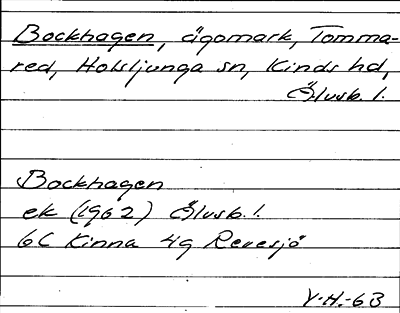 Bockhagen, ägomark, Tomma-
red, Holsljunga sn, Kinds hd,
Älvsb. l.
Bockhagen
ek (1962) Älvsb. l.
6C Kinna 4g Revesjö
V.H.-63